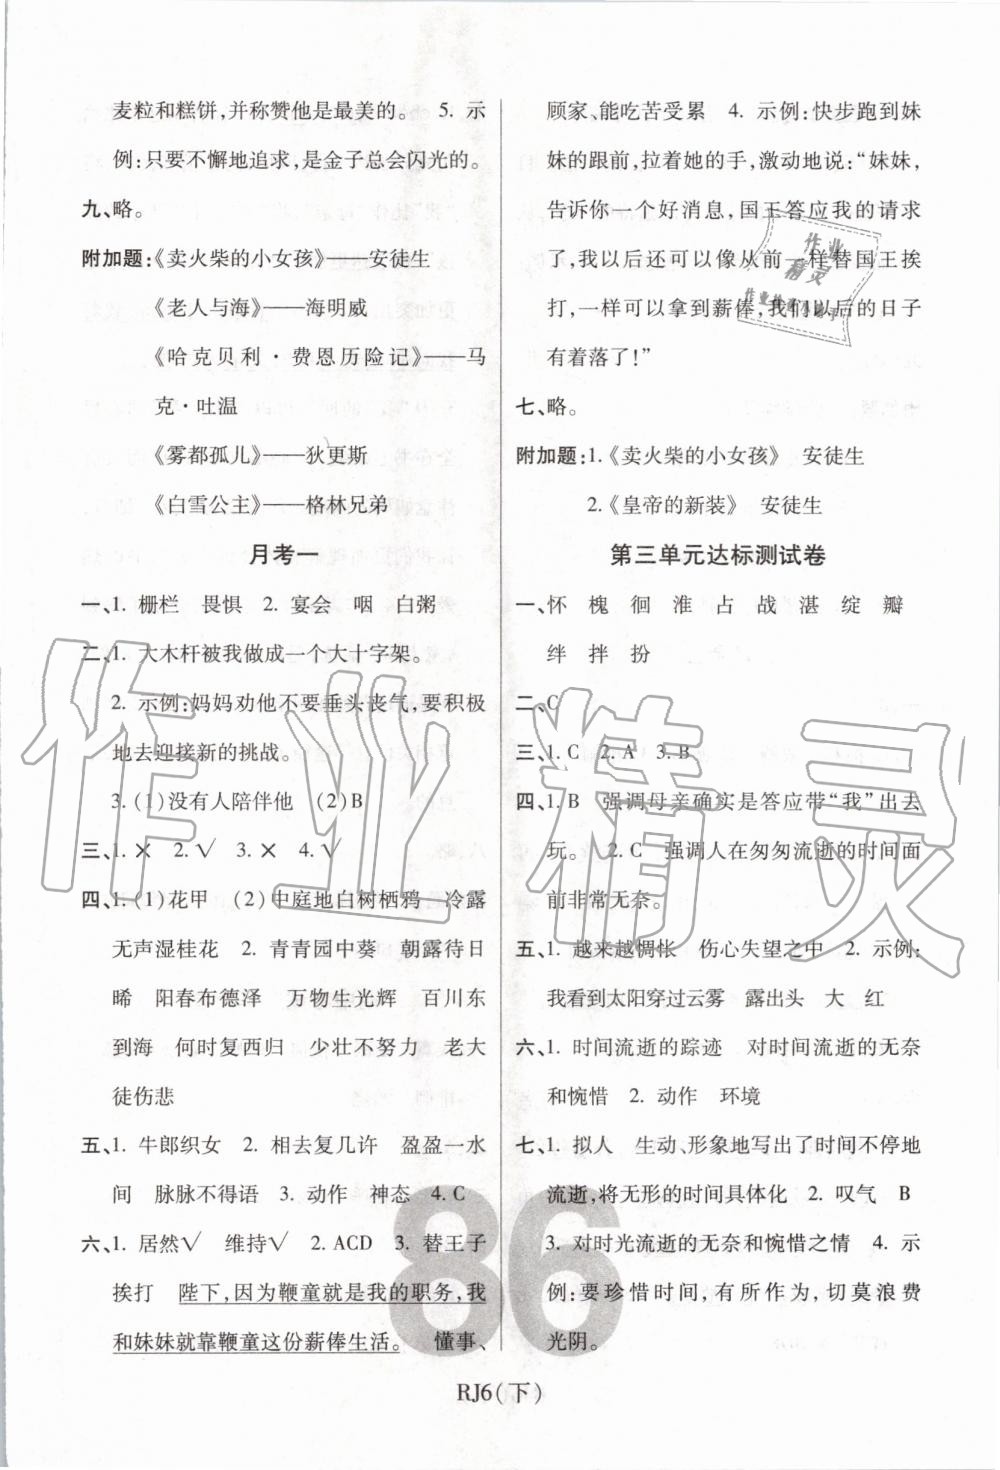 麦粒和糕饼,并称赞他是最美的。 5. 示
例:只要不懈地追求,是金子总会闪光的。
九、略。
附加题:《卖火柴的小女孩》——安徒生
《老人与海》——海明威
《哈克贝利·费恩历险记》——马
克·吐温
《雾都孤儿》——狄更斯
《白雪公主》——格林兄弟
月考一
一、1. 栅栏 畏惧 2. 宴会 咽 白粥
二、1. 大木杆被我做成一个大十字架。
2. 示例:妈妈劝他不要垂头丧气,要积极
地去迎接新的挑战。
3. (1)没有人陪伴他 (2)B
三、1. × 2. √ 3. × 4. √
四、1. (1)花甲 (2)中庭地白树栖鸦 冷露
无声湿桂花 2. 青青园中葵 朝露待日
晞 阳春布德泽 万物生光辉 百川东
到海 何时复西归 少壮不努力 老大
徒伤悲
五、1. 牛郎织女 2. 相去复几许 盈盈一水
间 脉脉不得语 3. 动作 神态 4. C
六、1. 居然√ 维持√ 2. ACD 3. 替王子
挨打 陛下,因为鞭童就是我的职务,我
和妹妹就靠鞭童这份薪俸生活。 懂事、
顾家,能吃苦受累 4. 示例:快步跑到妹
妹的跟前,拉着她的手,激动地说:“妹妹,
告诉你一个好消息,国王答应我的请求
了,我以后还可以像从前一样替国王挨
打,一样可以拿到薪俸,我们以后的日子
有着落了!”
七、略。
附加题:1.《卖火柴的小女孩》 安徒生
2.《皇帝的新装》 安徒生
第三单元达标测试卷
一、怀 槐 徊 淮 占 战 湛 绽 瓣
绊 拌 扮
二、C
三、1. C 2. A 3. B
四、1. B 强调母亲确实是答应带“我”出去
玩。 2. C 强调人在匆匆流逝的时间面
前非常无奈。
五、1. 越来越惆怅 伤心失望之中 2. 示例:
我看到太阳穿过云雾 露出头 大 红
六、1. 时间流逝的踪迹 对时间流逝的无奈
和惋惜 2. 动作 环境
七、1. 拟人 生动、形象地写出了时间不停地
流逝,将无形的时间具体化 2. 叹气 B
3. 对时光流逝的无奈和惋惜之情 4. 示
例:要珍惜时间,有所作为,切莫浪费
光阴。
86
RJ6(下)
作业精灵
作业
精灵